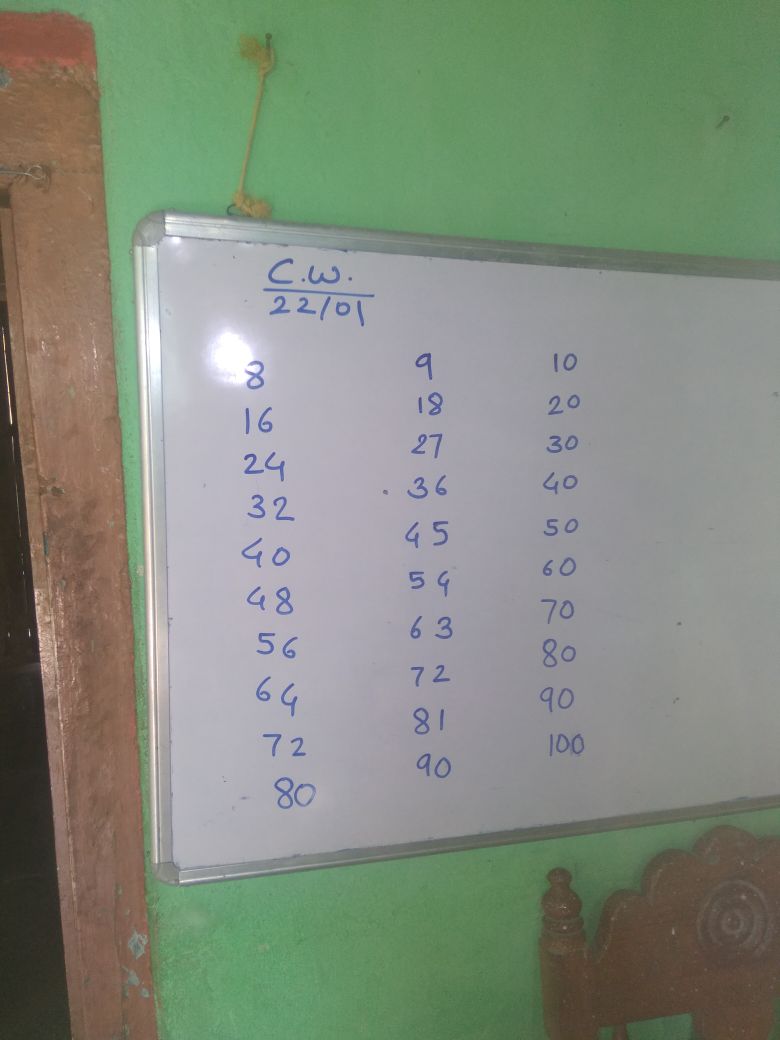 C.W.
22/01
8 9 10
16 18 20
24 27 30
32 36 40
40 45 50
48 54 60
56 63 70
64 72 80
72 81 90
80 90 100